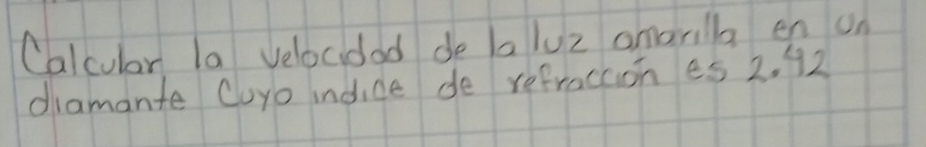 Calcular la velocidad de la luz amarilla en un
diamante cuyo indice de refracción es 2.42